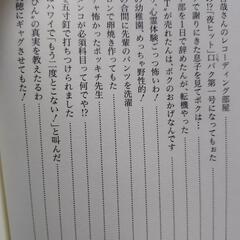 哉さんのレコーディング部屋
!?「夜ヒット」口パク第一号になってもた
で謝りにきた息子を見てボクは…
部を1日で辞めたんが、転機やった
T」が売れたんは、ボクのおかげなんです
霊体験さっつ怖いわ!
の幼稚園、めっちゃ野性的!
合間に先輩のパンツを洗濯
ロンで卵焼き作ってもた
ャ怖かったポッキチ先生
ンコが必須科目って何でや!?
五寸釘で打ちつけられました
ハワイで「もう二度とこない!」と叫んだ…
びん」の真実を教えたるわ
穂にギャグさせてもた!